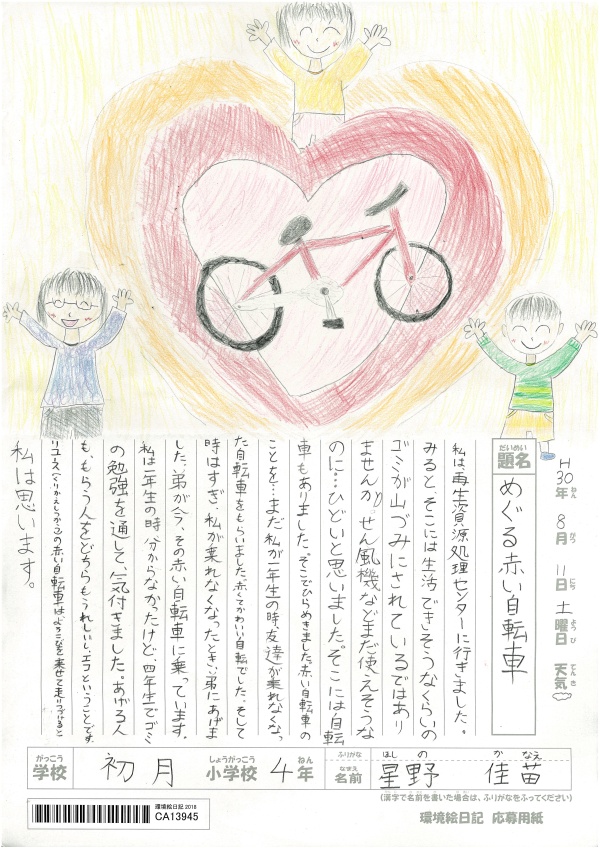 H30年 8月 11日 土曜日 天気
ねん がつ にち ようび てんき
だいめい
題名
めぐる赤い自転車
私は、再生資源処理センターに行きました。
みると、そこには生活できそうなくらいの
ゴミが山づみにされているではあり
ませんか。せん風機などまだ使えそうな
のに…ひどいと思いました。そこには自転
車もありました。そこでひらめきました。赤い自転車の
ことを…まだ私が一年生の時、友達が乗れなくなっ
た自転車をもらいました。赤くてかわいい自転でした。そして
時はすぎ、私が乗れなくなったとき、弟にあげま
した。弟が今、その赤い自転車に乗っています。
私は一年生の時、分からなかったけど、四年生でゴミ
の勉強を通して、気付きました。あげる人
も、もらう人をどちらもうれしいし、エコということです。
リユース(くりかえしつかう)の赤い自転車は、よろこびを乗せて走りつづけると
私は思います。
がっこう しょうがっこう ねん ふりがな ほしの かなえ
学校 初月 小学校 4年 なまえ 名前 星野 佳苗
(漢字で名前を書いた場合は、ふりがなをふってください)
環境絵日記 2018
CA13945
環境絵日記 応募用紙